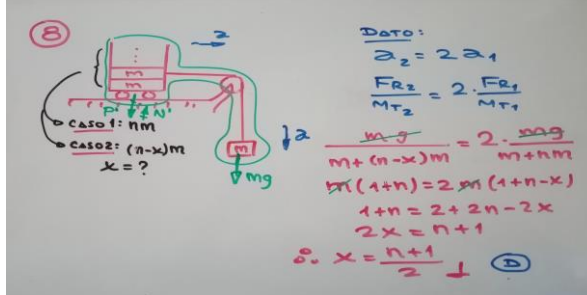 8
a
m
m
P' N'
CASO 1: nm
CASO2: (n-x)m
x = ?
m
mg
↓a
DATO:
a₂ = 2a₁
FR₂/MT₂ = 2 · FR₁/MT₁
mg/(m+(n-x)m) = 2 · mg/(m+nm)
m(1+n) = 2m(1+n-x)
1+n = 2+2n-2x
2x = n+1
∴ x = (n+1)/2
D